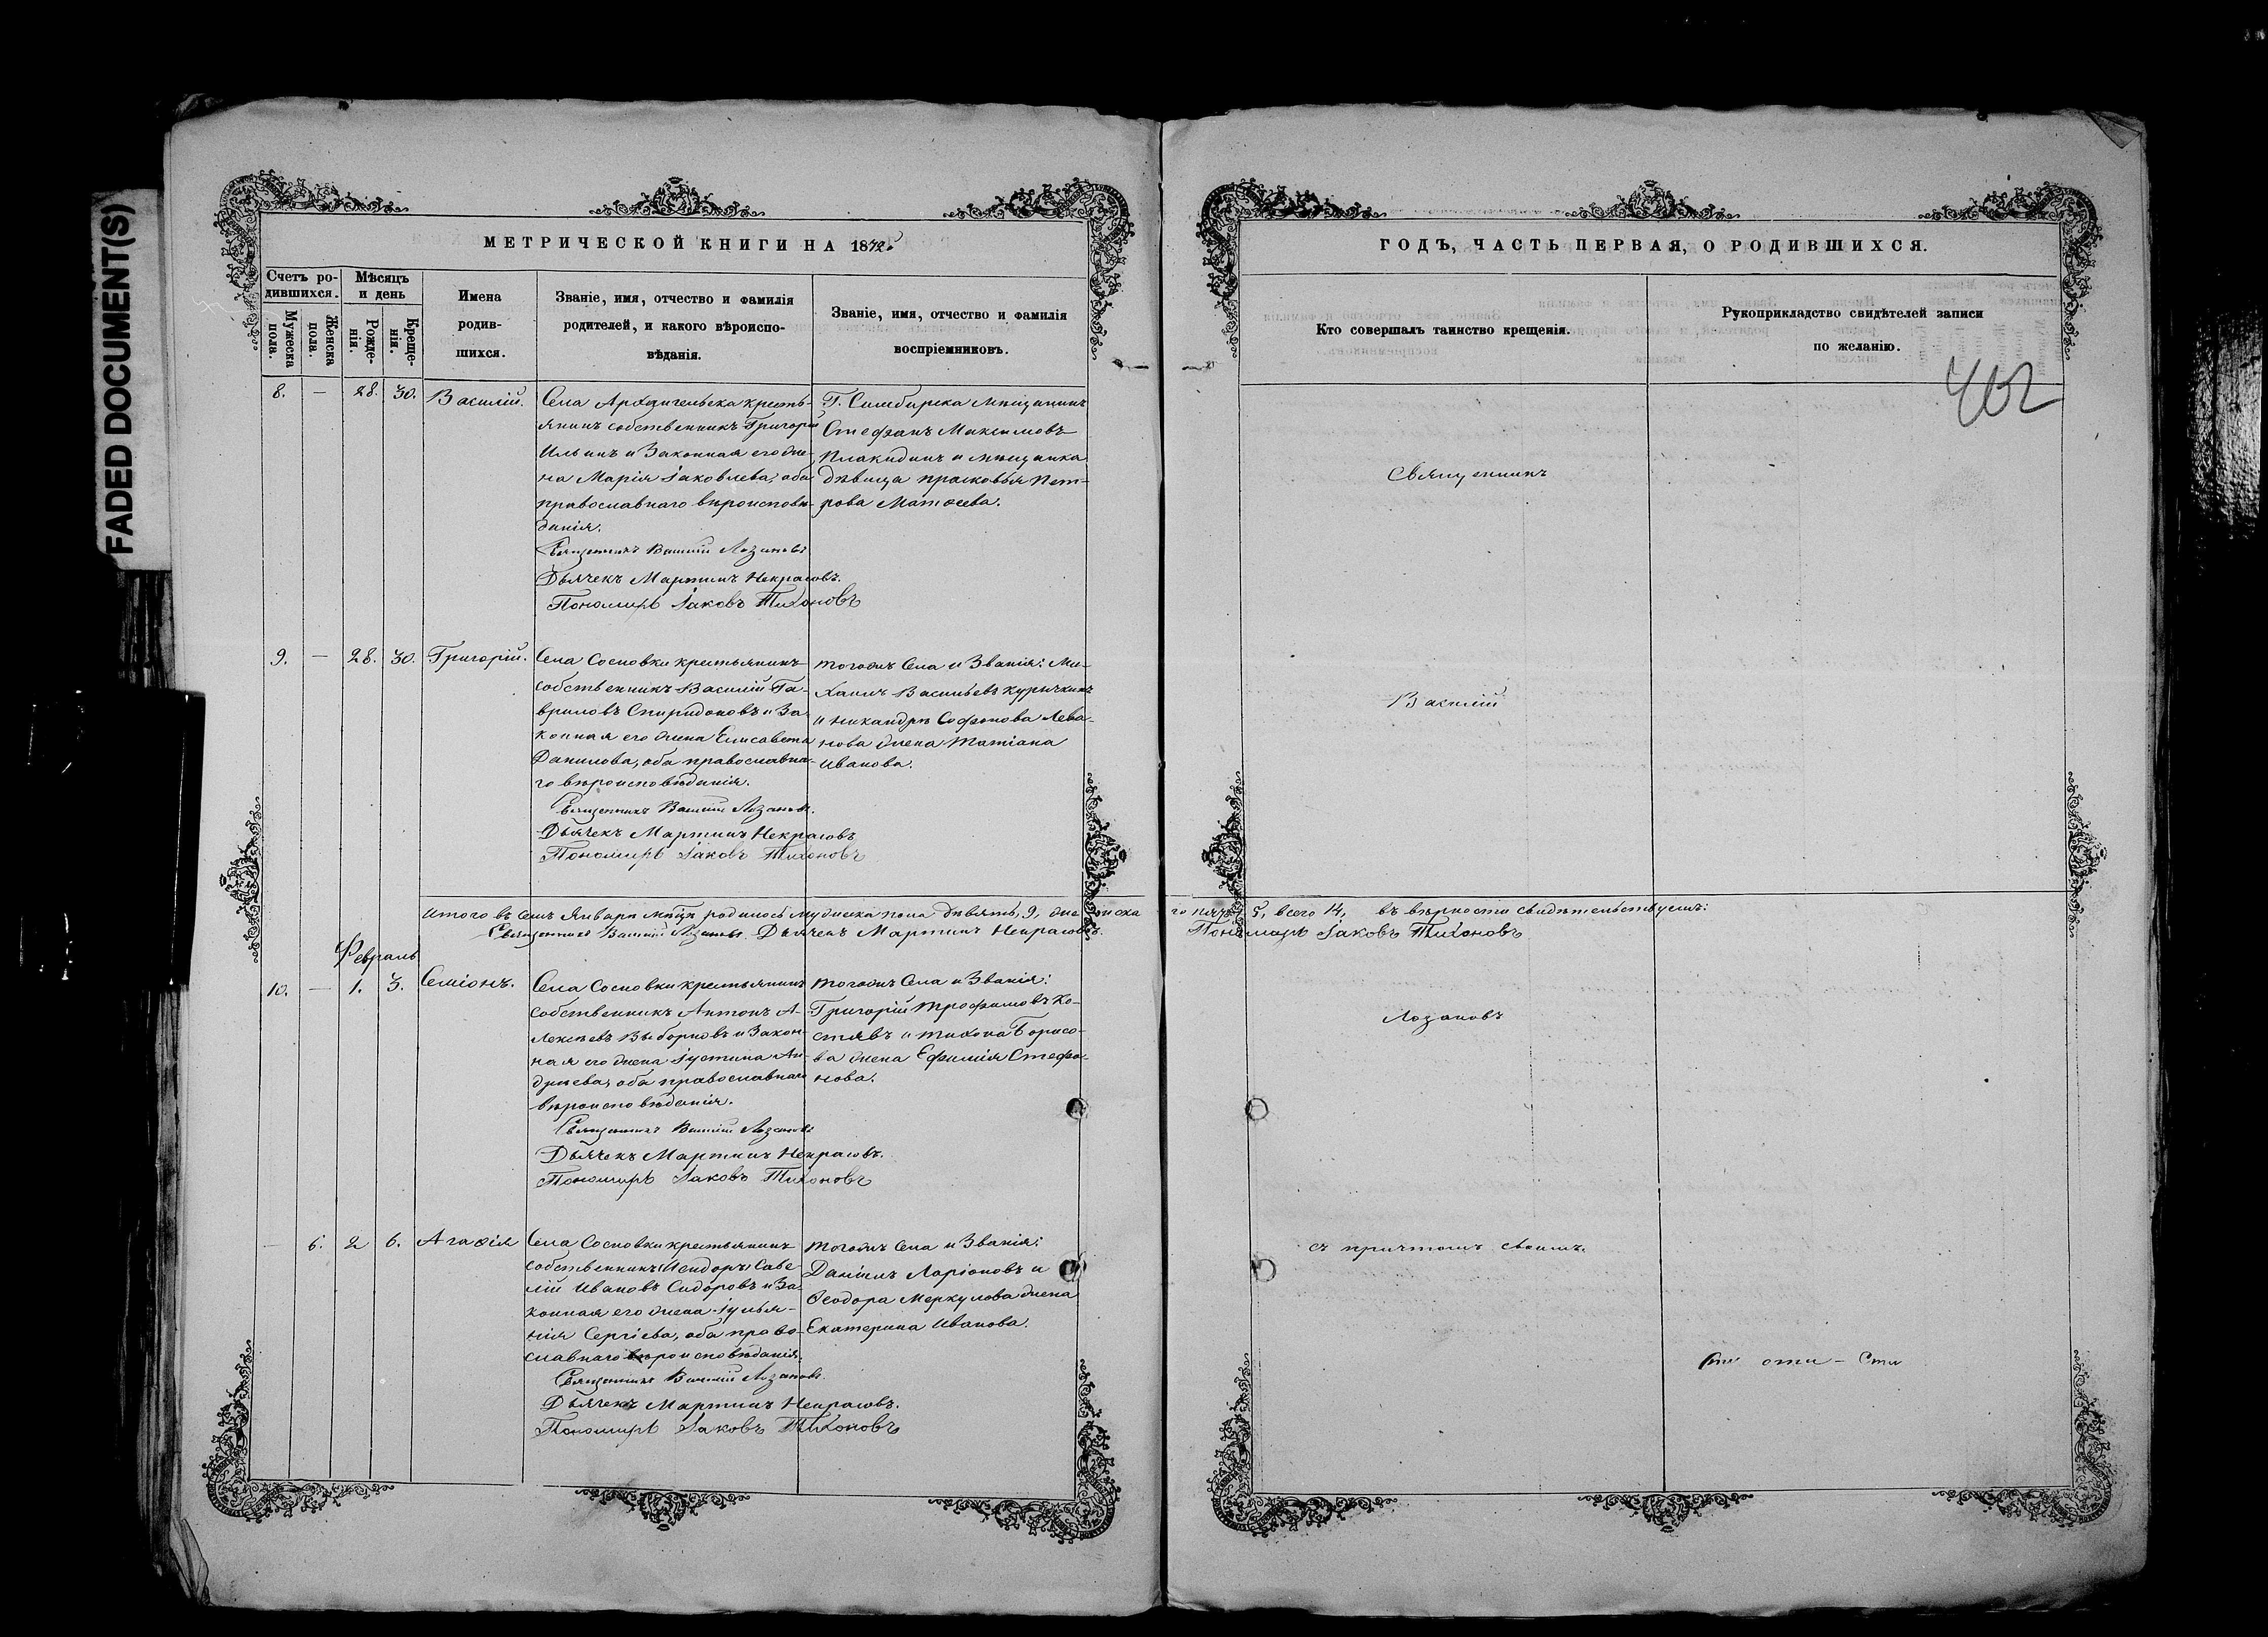 FADED DOCUMENT(S)
МЕТРИЧЕСКОЙ КНИГИ НА 1872й
Счетъ родившихся.
Мужеска пола.
Женска пола.
Мѣсяцъ и день
Рожденія.
Крещенія.
Имена родившихся.
Званіе, имя, отчество и фамилія
родителей, и какого вѣроиспо-
вѣданія.
Званіе, имя, отчество и фамилія
воспріемниковъ.
8. — 28. 30. Василій.
Села Архангельска кресть-
янинъ собственникъ Григорій
Ильинъ и Законная его же-
на Марія Іаковлева, оба
православнаго вѣроисповѣ-
данія.
Священникъ Василій Лозановъ
Дьячекъ Мартинъ Некрасовъ.
Пономарь Іаковъ Тихоновъ
Г. Симбирска мѣщанинъ
Стефанъ Максимовъ
Плакидинъ и мѣщанка
дѣвица Прасковья Пет-
рова Матѳеева.
9. — 28. 30. Григорій.
Села Сосновки крестьянинъ
собственникъ Василій Га-
вриловъ Спиридоновъ и За-
конная его жена Елисавета
Данилова, оба православна-
го вѣроисповѣданія.
Священникъ Василій Лозановъ.
Дьячекъ Мартинъ Некрасовъ
Пономарь Іаковъ Тихоновъ
тогожъ Села и Званія: Ми-
хаилъ Васильевъ Курочкинъ
и Никандра Софонова Лева-
нова жена Татіана
Иванова.
Итого въ семъ Январѣ мѣсяцѣ родилось мужеска пола девять, 9, женска
го пять 5, всего 14, въ вѣрности свидѣтельствуемъ:
Священникъ Василій Лозановъ. Дьячекъ Мартинъ Некрасовъ.
Пономарь Іаковъ Тихоновъ
Февраль
10. — 1. 3. Семіонъ.
Села Сосновки крестьянинъ
собственникъ Антонъ А-
лексѣевъ Выборновъ и Закон-
ная его жена Іустина Ан-
дреева, оба православнаго
вѣроисповѣданія.
Священникъ Василій Лозановъ
Дьячекъ Мартинъ Некрасовъ.
Пономарь Іаковъ Тихоновъ
тогожъ Села и Званія:
Григорій Трофимовъ Ко-
стявъ и Тихона Борисо-
ва жена Ефимія Стефа-
нова.
— 6. 2 6. Агаѳія
Села Сосновки крестьянинъ
собственникъ Исидоръ, Саве-
лій Ивановъ Сидоровъ и За-
конная его жена Іулья-
нія Сергіева, оба право-
славнаго вѣроисповѣданія.
Священникъ Василій Лозановъ.
Дьячекъ Мартинъ Некрасовъ.
Пономарь Іаковъ Тихоновъ
тогожъ Села и Званія:
Даніилъ Ларіоновъ и
Ѳеодора Меркулова жена
Екатерина Иванова.
ГОДЪ, ЧАСТЬ ПЕРВАЯ, О РОДИВШИХСЯ.
Кто совершалъ таинство крещенія.
Рукоприкладство свидѣтелей записи
по желанію.
402
Священникъ
Василій
Лозановъ
съ причтомъ своимъ.